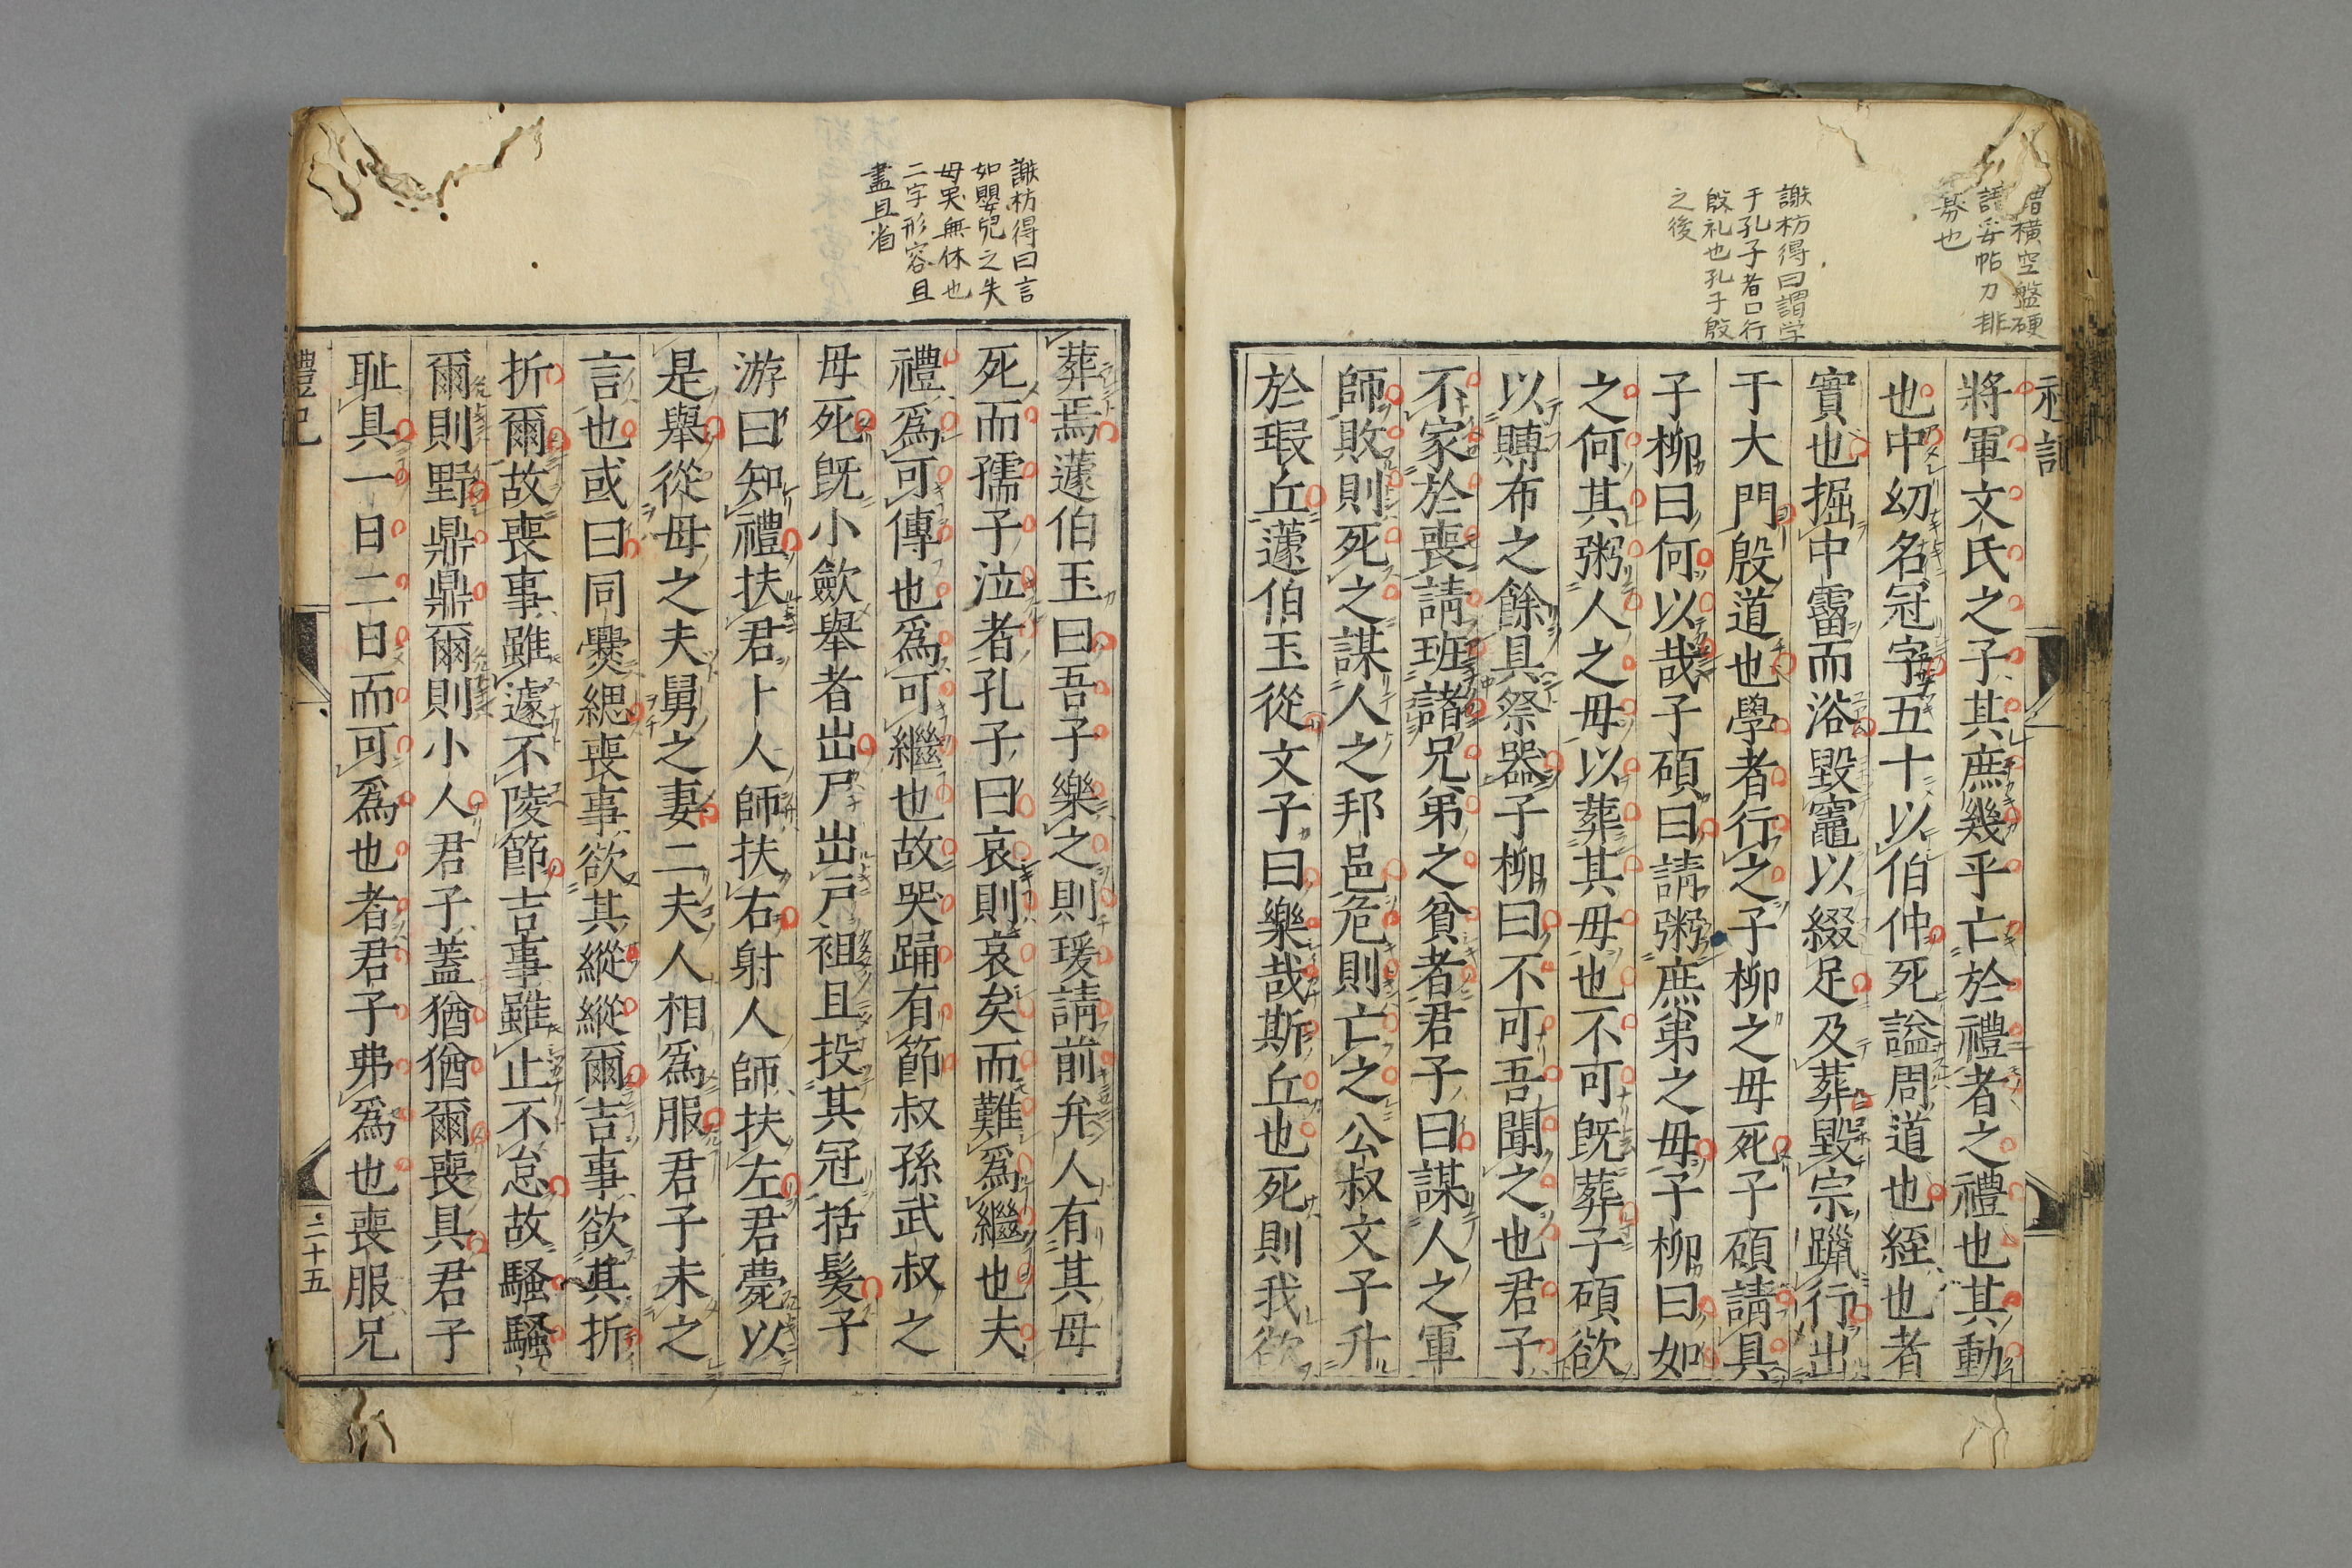 將軍文氏之子其庶幾乎亡於禮者之禮也其動
也中幼名冠字五十以伯仲死謚周道也絰也者
實也掘中霤而浴毀竈以綴足及葬毀宗躐行出
于大門殷道也學者行之子柳之母死子碩請具
子柳曰何以哉子碩曰請粥庶弟之母子柳曰如
之何其粥人之母以葬其母也不可既葬子碩欲
以賻布之餘具祭器子柳曰不可吾聞之也君子
不家於喪請班諸兄弟之貧者君子曰謀人之軍
師敗則死之謀人之邦邑危則亡之公叔文子升
於瑕丘蘧伯玉從文子曰樂哉斯丘也死則我欲
謝枋得曰謂学
于孔子者口行
殷礼也孔子殷
之後
橫空盤硬
語妥帖力排
奡也
葬焉蘧伯玉曰吾子樂之則瑗請前弁人有其母
死而孺子泣者孔子曰哀則哀矣而難爲繼也夫
禮爲可傳也爲可繼也故哭踊有節叔孫武叔之
母死既小歛舉者出尸出戶袒且投其冠括髮子
游曰知禮扶君卜人師扶右射人師扶左君薨以
是舉從母之夫舅之妻二夫人相爲服君子未之
言也或曰同爨緦喪事欲其縱縱爾吉事欲其折
折爾故喪事雖遽不陵節吉事雖止不怠故騷騷
爾則野鼎鼎爾則小人君子蓋猶猶爾喪具君子
耻具一日二日而可爲也者君子弗爲也喪服兄
禮記
二十五
謝枋得曰言
如嬰兒之失
母哭無休也
二字形容且
盡且省